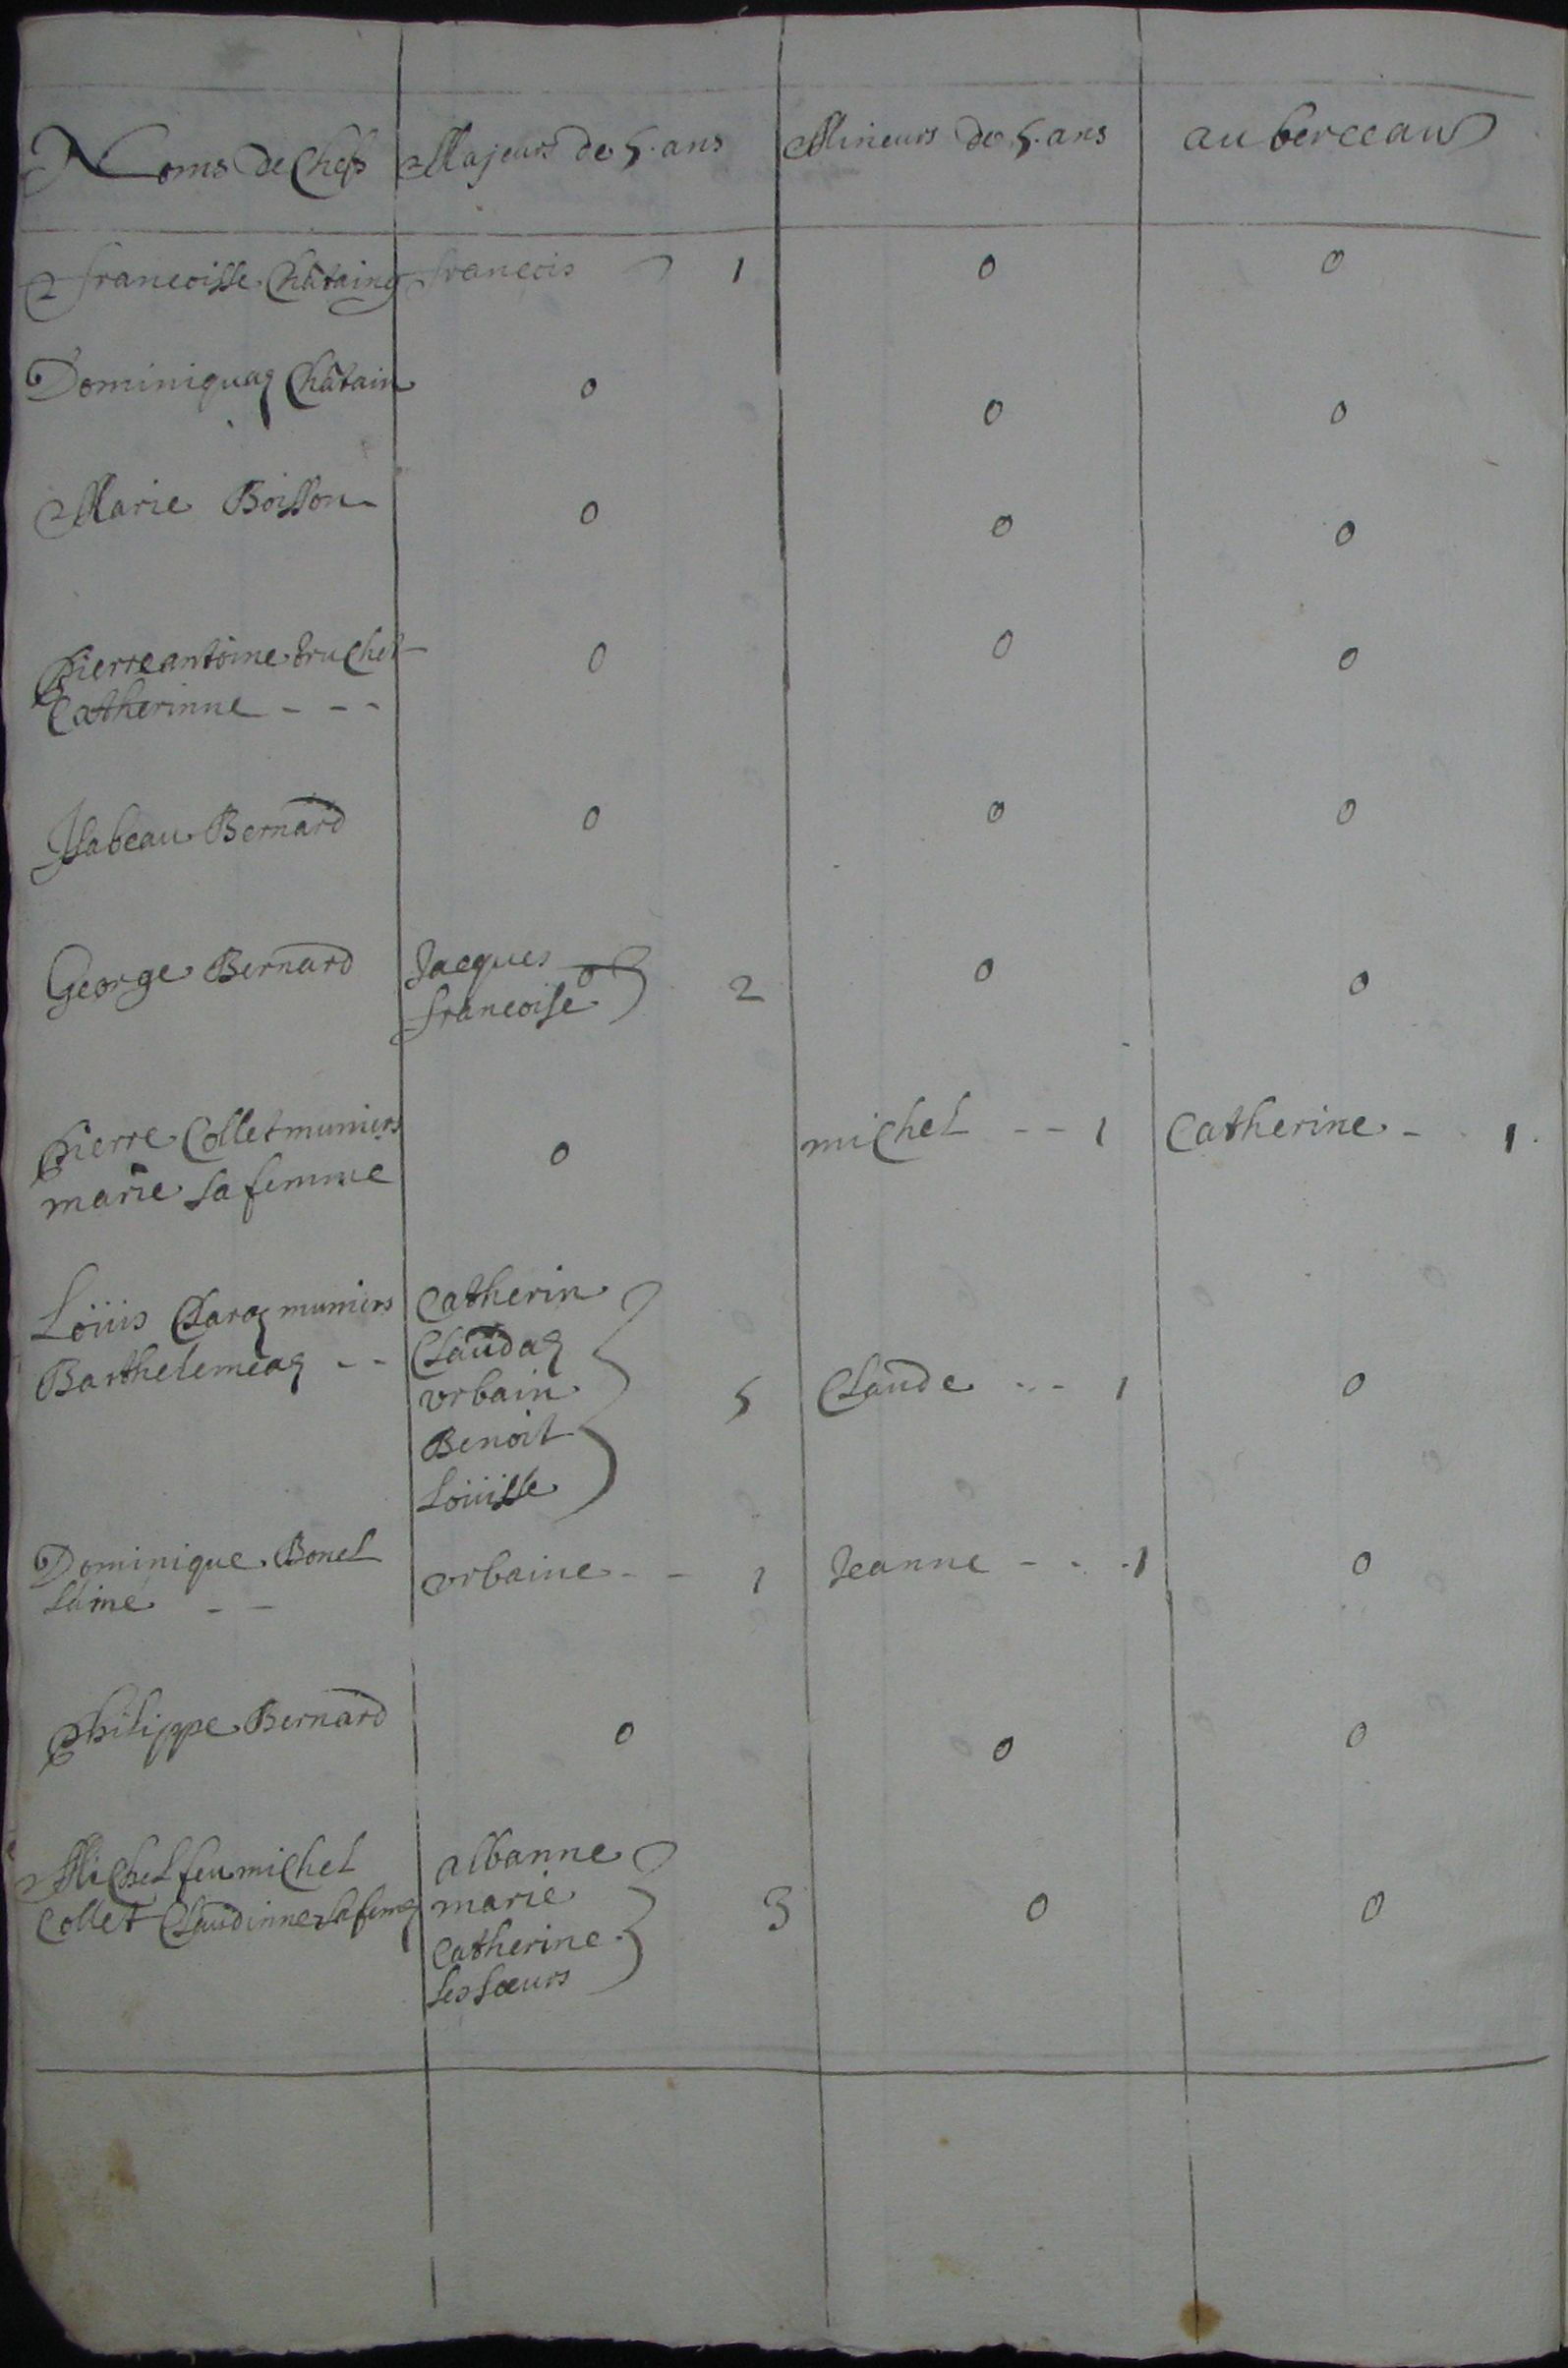 Noms de Chefs Majeurs de 5. ans Mineurs de 5. ans au berceau
francoisse Châtaing francois 1 0 0
Dominiquaz Châtain 0 0 0
Marie Boisson 0 0 0
Pierre antoine truchet 0 0 0
Catherinne - - -
Isabeau Bernard 0 0 0
George Bernard Jacques 2 0 0
francoise
Pierre Collet muniers 0 michel - - 1 Catherine - 1.
marie sa femme
Loüis muniers Catherin
Barthelemeaz - - Claudaz
vrbain 5 Claude - - 1 0
Benoit
Loüisse
Dominique Bonel vrbaine - - 1 Jeanne - - - 1 0
Lainé - -
Philippe Bernard 0 0 0
Michel feu michel albanne
Collet Claudinne sa femz marie 3 0 0
Catherine
ses sœurs